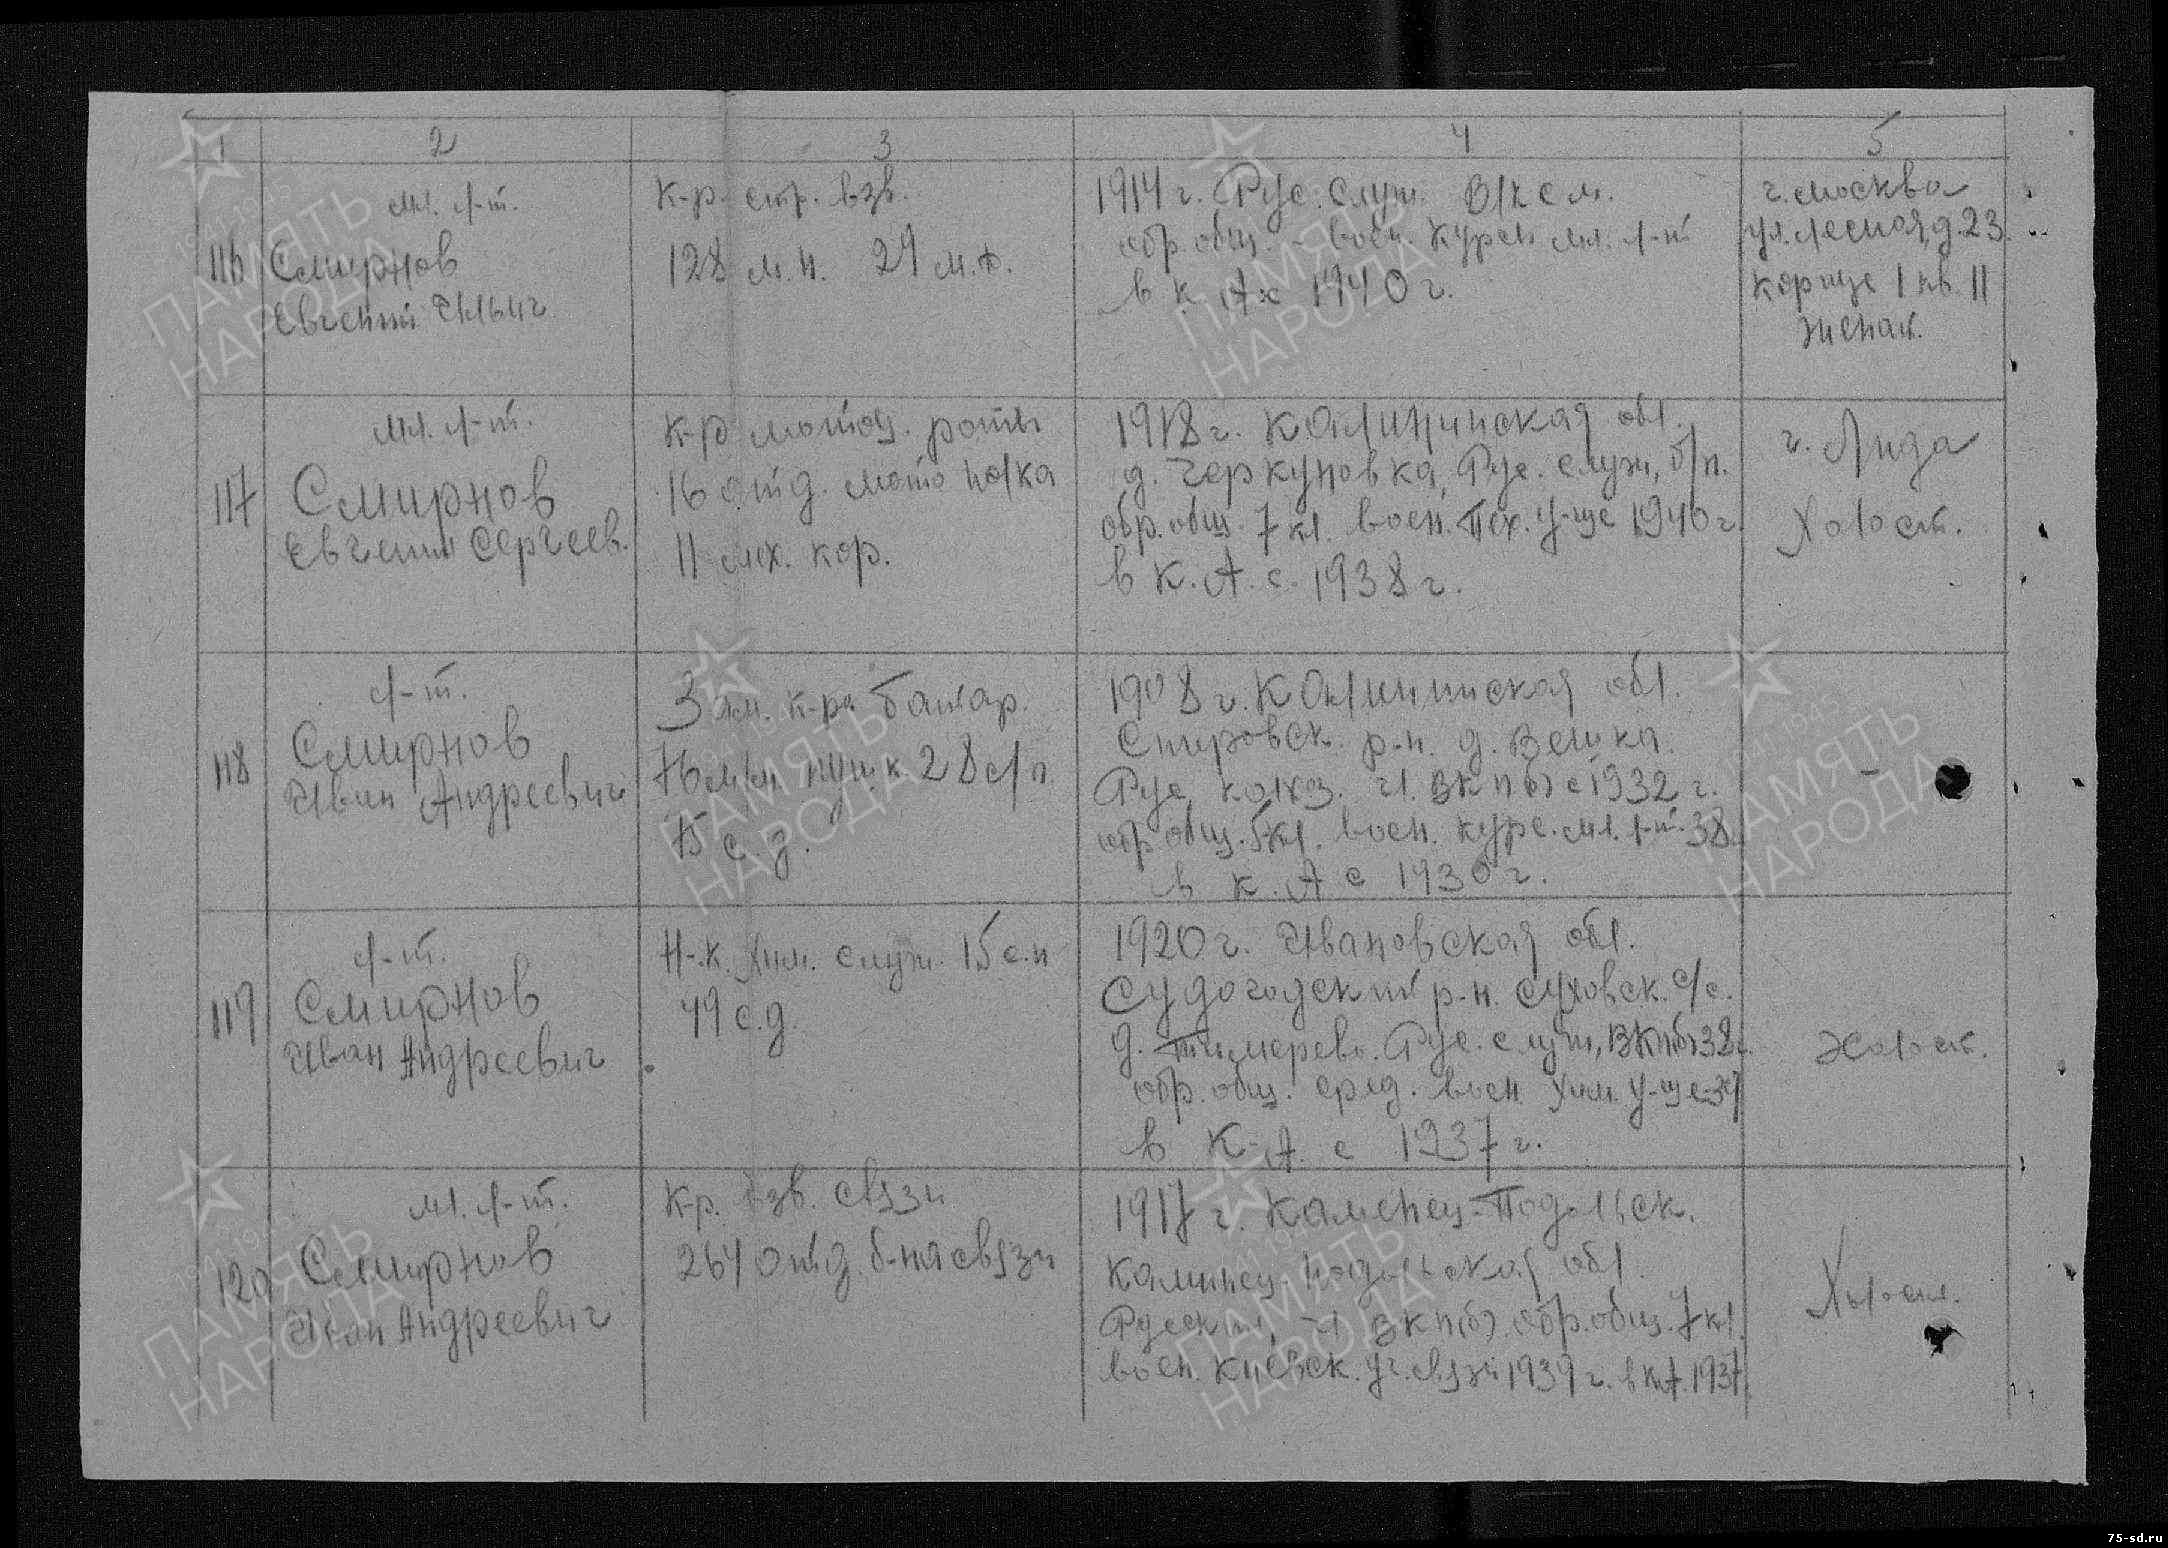 1 2 3 4 5
116
мл. л-т.
Смирнов
Евгений Ильич
к-р. стр. взв.
128 м.п. 29 м.д.
1914 г. Рус. служ. ВЛКСМ.
обр. общ - воен. курсы мл. л-т
в К.А с 1940 г.
г. Москва
ул. Лесная, д. 23.
корпус 1 кв. 11
женат.
117
мл. л-т.
Смирнов
Евгений Сергеев.
к-р мотоц. роты
16 отд. мото полка
11 мех. кор.
1918 г. Калининская обл.
д. Черкуновка, Рус. служ, б/п.
обр. общ. 7 кл. воен. Пех. у-ще 1940 г
в К.А. с. 1938 г.
г. Лида
Холост.
118
л-т.
Смирнов
Иван Андреевич
3 пом. к-ра батар.
76 м/м. пушк. 28 с/п
75 с.д.
1908 г. Калининская обл.
Спировск. р-н. д.
Рус. колхз. чл. ВКП(б) с 1932 г.
обр общ. 5 кл. воен. курс. мл. л-т. 38
в К.А с 1930 г.
-
119
л-т.
Смирнов
Иван Андреевич
Н-.к. Хим. служ. 15 с.п
49 с.д
1920 г. Ивановская обл.
Судогодский р-н. Суховск. с/с.
д. Тимерево. Рус. служ, ВКП(б) 38 г.
обр. общ. сред. воен. Хим. у-ще 39
в К.А. с 1937 г.
холост.
120
мл. л-т.
Смирнов
Иван Андреевич
Кр. взв. связи
264 отд. б-на связи
1917 г. Каменец-Подольск.
Каминец. Подольская обл.
Русский, чл ВКП(б). обр. общ. 7 кл.
воен. Киевск. уч. связи 1939 г. в К.А. 1937
Холост.
1941 1945
ПАМЯТЬ
НАРОДА
75-sd.ru